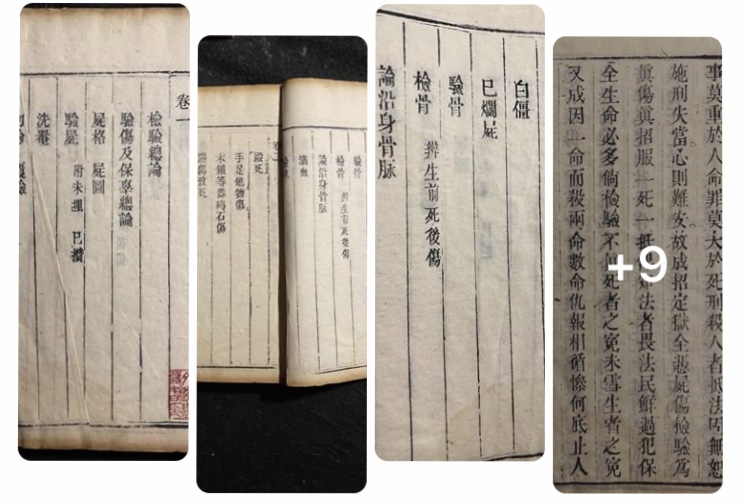 卷一
檢驗總論
驗傷及保辜總論
屍格 屍圖
驗屍 附未埋 已攢
洗罨
檢骨 辨生前死後傷
論沿身骨脉
滴血
毆死
手足他物傷
木鐵等器磚石傷
踢傷致死
白僵
已爛屍
驗骨
檢骨 辨生前死後傷
論沿身骨脉
事莫重於人命罪莫大於死刑殺人者抵法固無恕
施刑失當心則難安故成招定獄全憑屍傷檢驗為
眞傷眞招服一死一抵法者畏法民鮮過犯保
全生命必多倘檢驗不死者之冤未雪生者之冤
又成因一命而殺兩命數命仇報相循慘何底止人
+9